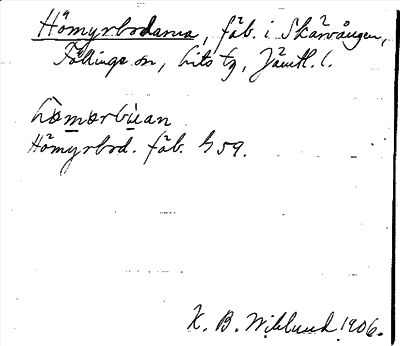 Hömyrbodarna, fäb. i Skärvången,
Föllinge sn, Lits tg, Jämtl. l.
hömörbùan
Hömyrbod. fäb. h 59.
K. B. Wiklund 1906.